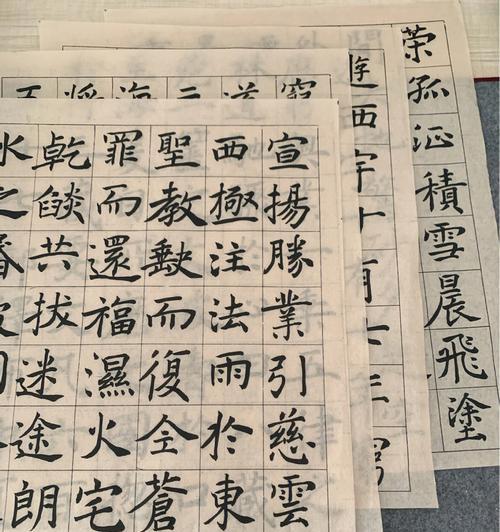 策孤征積雪晨飛塗
遊西宇十有七年窮
宣揚勝業引慈雲
西極注法雨於東
聖教缺而復全蒼
罪而還福濕火宅
乾燄共拔迷途朗
水之